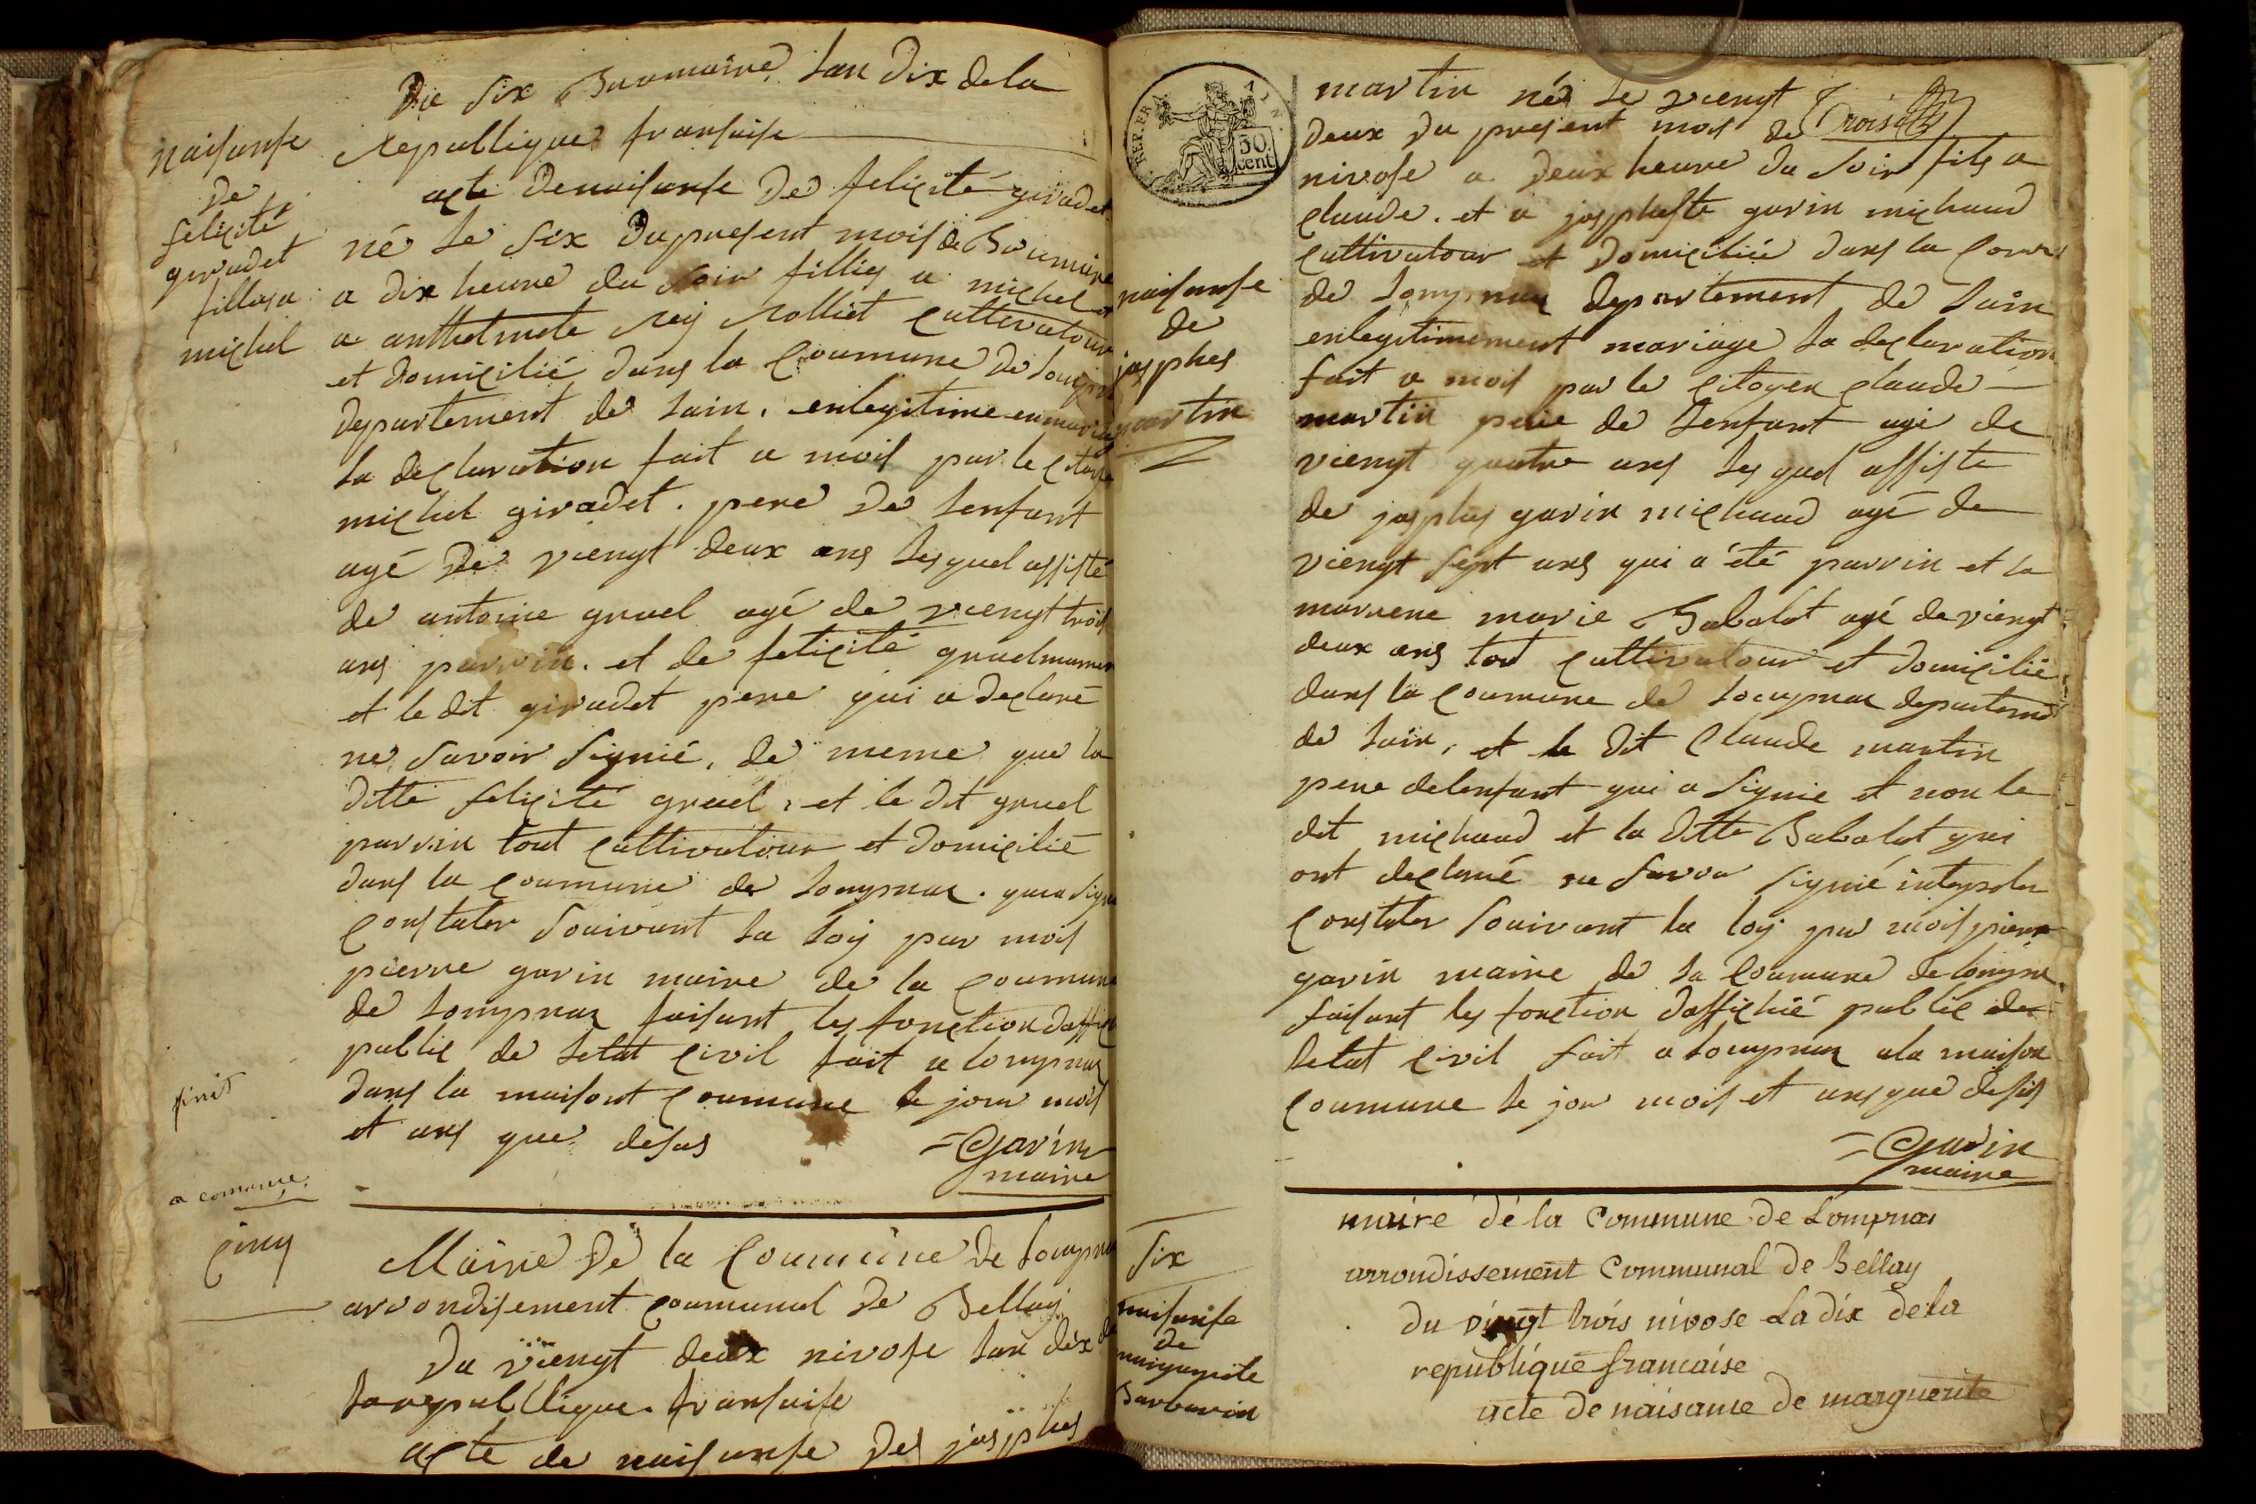 Du six Brumaire lan dix dela
republique fransaise
naisanse
de
felicité
giradet
filles a
michel
acte denaisanse de felicité giradet
né le six du present mois de Brumaire
a dix heure du soir fillies a michel et
a anthelmete Rey Molliet cultivatour
et domicilié dans la coumune de lompnas
departement de lain, enlegitime enmariage
la declaration fait a mois par le citoyen
michel giradet pere de lenfant
agé de viengt deux ans les quel assisté
de antoine gruel agé de viengt trois
ans parrin et de felicité gruel marrene
et le dit giradet pere qui a declaré
ne savoir signié, de meme que la
ditte felicité gruel, et le dit gruel
parrin tout cultivatour et domicilié
dans la coumune de lompnas qui a signé
constater souivant la loy par mois
pierre gavin maire de la coumune
de lompnas faisant les fonction daffisié
public de letat civil fait a lompnas
dans la maisont coumune le jour mois
et ans que desus
Gavin
maire
finis
a comance
cinq
Maire de la Coumune de lompnas
arrondisement coumunal de Bellay
Du viengt deux nivose lan dix de
la republlique fransaise
acte de naisanse des josphes
REP. FRA. AIN.
50 cent
martin né le viengt Trois
deux du present mois de
nivose a deux heure du soir fils a
claude et a jospheste gavin michaud
cultivatour et domicilié dans la coumune
de lompnas departement de lain
enlegitimement mariage la declaration
fait a mois par le citoyen claude
martin pere de lenfant agé de
viengt quatre ans les quel assiste
de josphes gavin michaud agé de
viengt sept ans qui a été parrin et la
marrene marie Babolat agé de viengt
deux ans tout cultivatour et domicilié
dans la coumune de lompnas departement
de lain, et le dit Claude martin
pere delenfant qui a signie et non le
dit michaud et la ditte Babolat qui
ont declaré ne savoir signié
constater souivant la loy par mois pierre
gavin maire de la coumune de lompnas
faisant les fonction daffichié public de
letat civil fait a lompnas ala maison
coumune le jour mois et ans que desus
Gavin
maire
naisanse
de
josphes
martin
six
naisanse
de
marguerite
Barbarin
maire dé la Commune de Lompnas
arrondissement Communal de Bellay
du vingt trois nivose La dix de la
republique francaise
acte de naisance de marguerite